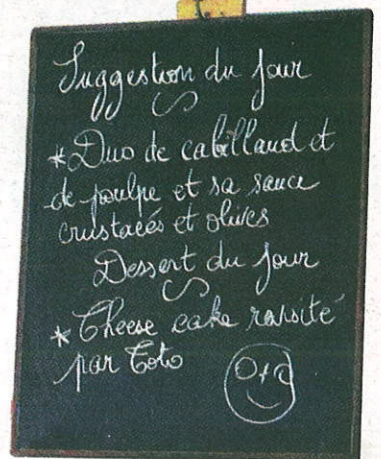 Suggestion du jour
*Duo de cabillaud et
de poulpe et sa sauce
crustacés et olives
Dessert du jour
*Cheese cake revisité
par Toto
0+0